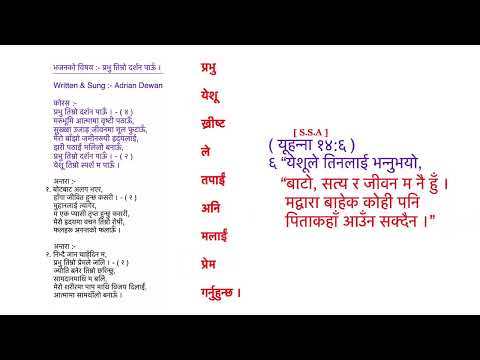 भजनको विषय :- प्रभु तिम्रो दर्शन पाऊँ ।
Written & Sung :- Adrian Dewan
कोरस :-
प्रभु तिम्रो दर्शन पाऊँ । - ( ४ )
मरुभूमि आत्मामा वृष्टी पठाऊ,
सुख्खा उजाड जीवनमा मूल फुटाऊ,
मेरो बाँझो जमीनरूपी हृदयलाई,
झरी पठाई मलिलो बनाऊ,
प्रभु तिम्रो दर्शन पाऊँ । - ( २ )
येशू तिम्रो स्पर्श म पाऊँ ।
अन्तरा :-
१. बोटबाट अलग भएर,
हाँगा जीवित हुन्छ कसरी । - ( २ )
मुहानलाई त्यागेर,
म एक प्यासी तृप्त हुन्छु कसरी,
मेरो हृदयमा वचन तिम्रो रोपी,
फलहरू अनन्तको फलाऊँ ।
अन्तरा :-
२. निभ्दै जान चाहँदिन म,
प्रभु तिम्रो प्रेमले जलि । - ( २ )
ज्योति बनेर तिम्रो छरिन्छु,
सामदानमाथि म बलि,
मेरो शरीरमा पाप माथि विजय दिलाई,
आत्मामा सामर्थीलो बनाऊँ ।
प्रभु
येशू
ख्रीष्ट
ले
तपाईं
अनि
मलाई
प्रेम
गर्नुहुन्छ ।
[ S.S.A ]
( यूहन्ना १४:६ )
६ “येशूले तिनलाई भन्नुभयो,
“बाटो, सत्य र जीवन म नै हुँ ।
मद्वारा बाहेक कोही पनि
पिताकहाँ आउँन सक्दैन ।”